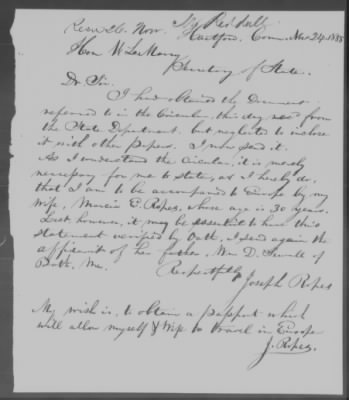 Hartford, Conn. Nov 24, 1888
Hon W
Secretary of State.
Dr Sir.
I had obtained the Document
referred to in the Circular, this day recd from
the State Department, but neglected to inclose
it with other papers. I now send it.
As I understand the circular, it is merely
necessary for me to state, as I hereby do,
that I am to be accompanied to Europe by my
Wife, E. Ropes, whose age is 30 years.
Lest however, it may be essential to have this
statement verified by Oath, I send again the
affidavit of her father, Wm D. Sewall of
Bath, Me.
Respectfully
Joseph Ropes
My wish is, to obtain a passport which
will allow myself & Wife to travel in Europe
J. Ropes.